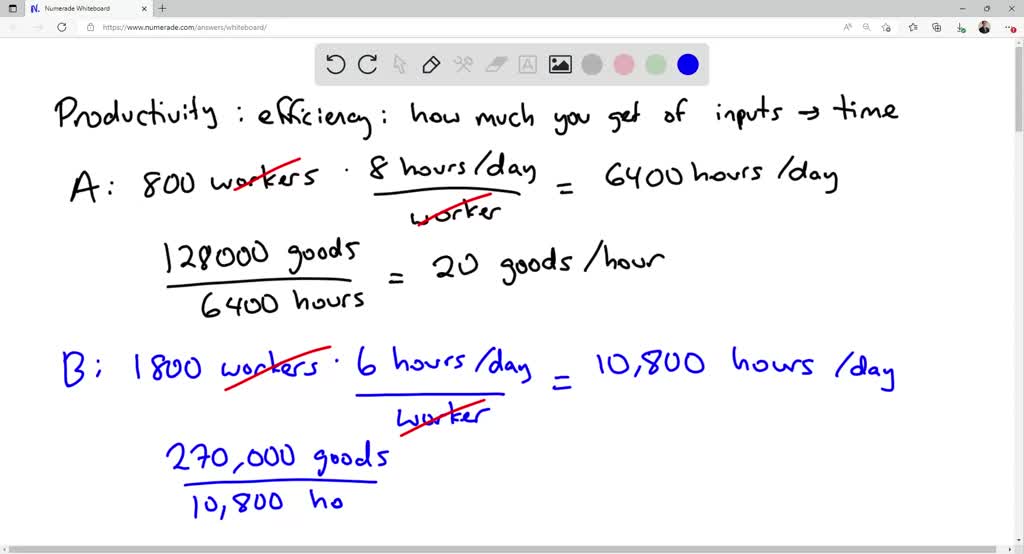 Numerade Whiteboard
https://www.numerade.com/answers/whiteboard/
Productivity : efficiency : how much you get of inputs → time
A: 800 workers · 8 hours/day / worker = 6400 hours /day
128000 goods / 6400 hours = 20 goods /hour
B: 1800 workers · 6 hours/day / worker = 10,800 hours /day
270,000 goods
10,800 ho